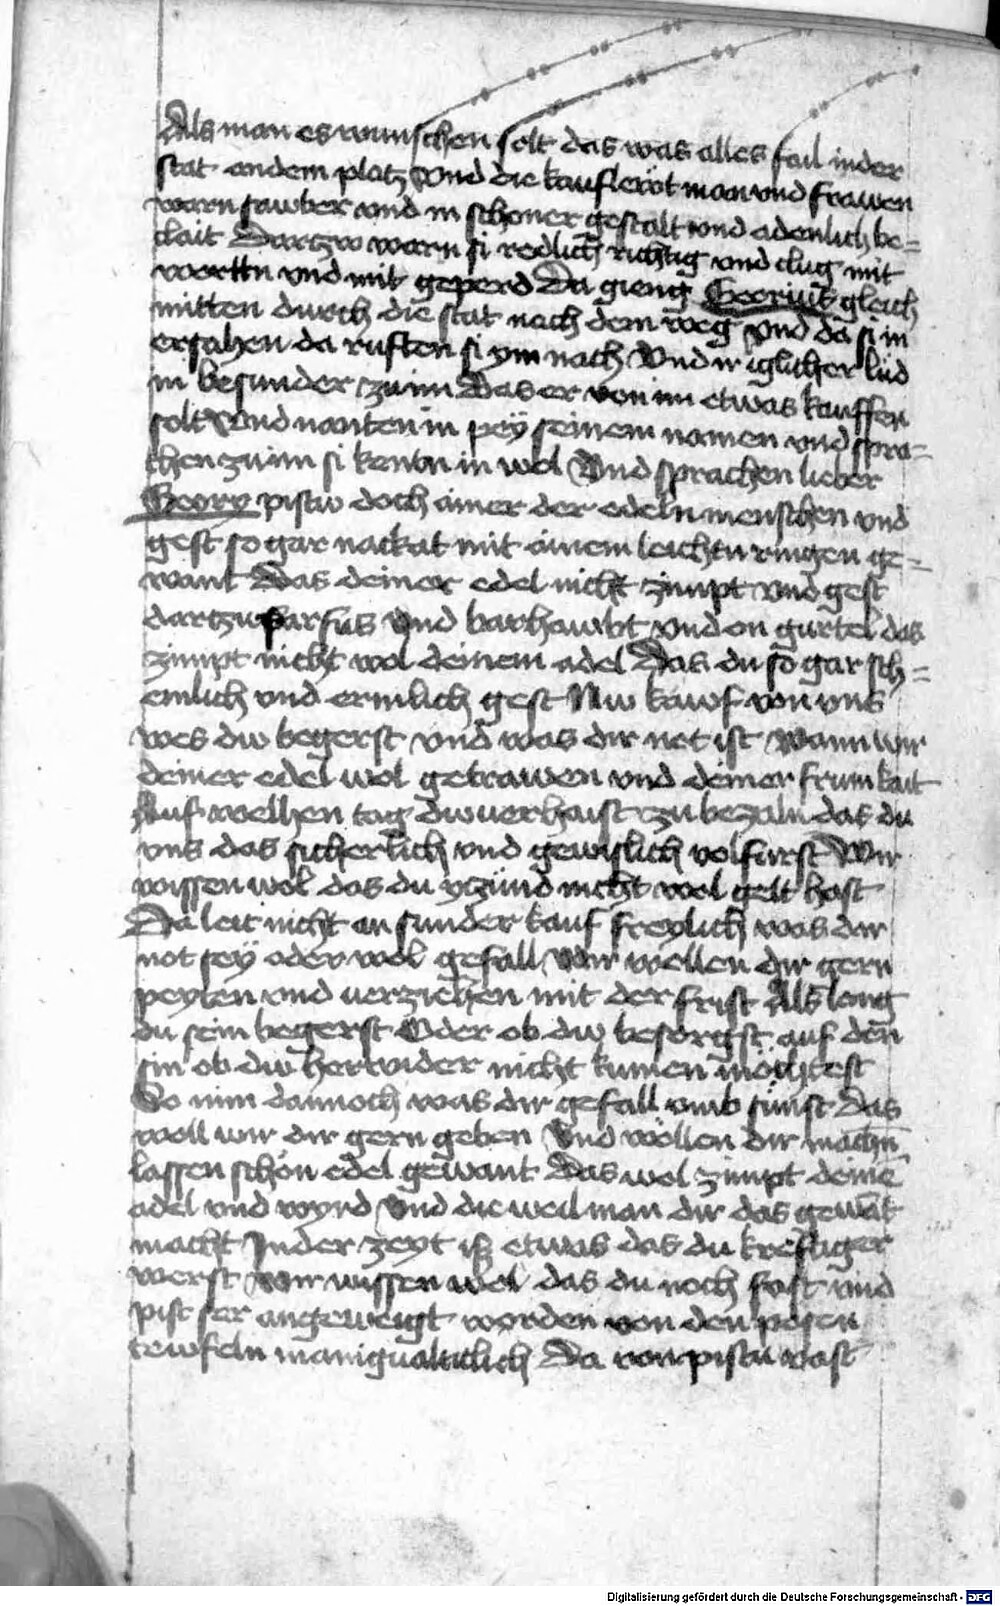 Als man es wunschen solt das was alles fail in der
stat an dem platz Vnd die kauflewt man vnd frawen
warn sawber vnd in schoner gestalt vnd adenlich be=
clait Dartzw warn si redlich richtig vnd clug mit
wortten vnd mit geperd Da gieng Georius gleich
mitten durch die stat nach dem weg Vnd da si in
ersahen da ruften si ym nach Vnd ir iglicher lud
in besunder zu im Das er von im etwas kauffen
solt Vnd nanten in pey seinem namen vnd spra=
chen zu im si kentn in wol Vnd sprachen lieber
Georg pistw doch ainer der edeln menschen vnd
gest so gar nackat mit ainem leichtn ringen ge=
want Das deiner edel nicht zimpt vnd gest
dartzu parfus Vnd barhawbt vnd on gurtel das
zimpt nicht wol deinem adel Das du so gar sch=
emlich vnd ermlich gest Nw kawf von vns
wes dw begerst vnd was dir not ist Wann wir
deiner edel wol getrawen vnd deiner frumkait
Auf welhen tag dw verhaist zu bezaln das du
vns das sicherlich vnd gewislich volfurst Wir
wissen wol das du yczund nicht wol gelt hast
Da leit nicht an sunder kauf freylich was dir
not sey oder wol gefall Wir wellen dir gern
peyten vnd verziehen mit der frist Als lang
du sein begerst Oder ob dw besorgst auf den
sin ob dw herwider nicht kumen möchtest
So nim dannoch was dir gefall vmb sünst Das
woll wir dir gern geben Vnd wöllen dir machn
lassen schön edel gewant Das wol zimpt deinē
adel vnd wyrd Vnd die weil man dir das gewāt
macht In der zeyt iß etwas das du kreftiger
werst Wir wissen wol das du noch fast vnd
pist ser angeweigt worden von den posen
tewfeln manigualticlich Da von pistu vast